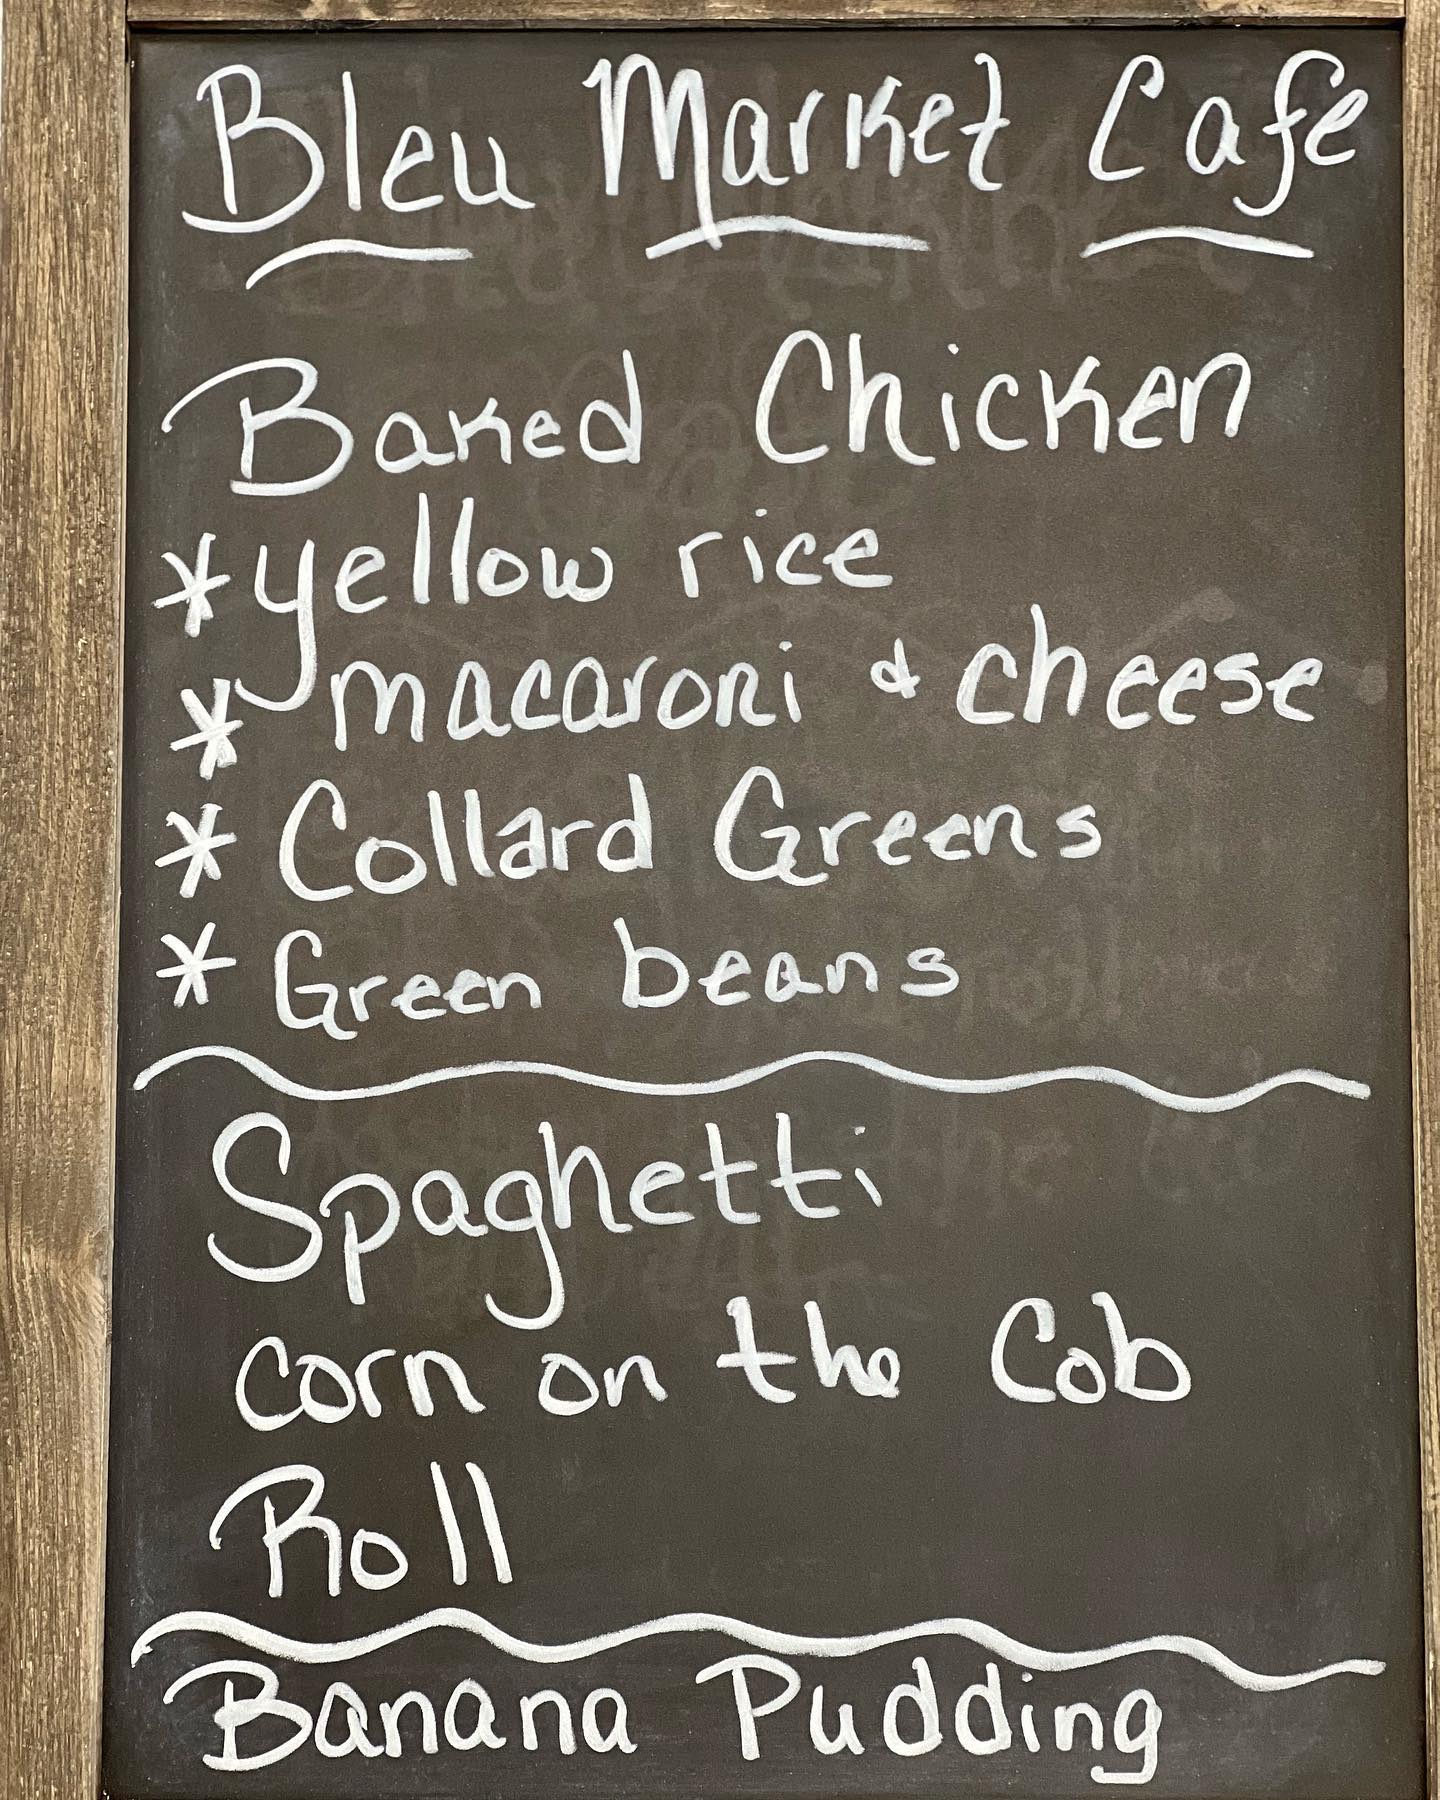 Bleu Market Cafe
Baked Chicken
* yellow rice
* macaroni & cheese
* Collard Greens
* Green beans
Spaghetti
corn on the Cob
Roll
Banana Pudding